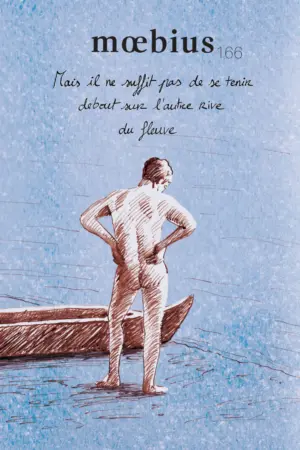 mœbius 166
Mais il ne suffit pas de se tenir
debout sur l'autre rive
du fleuve